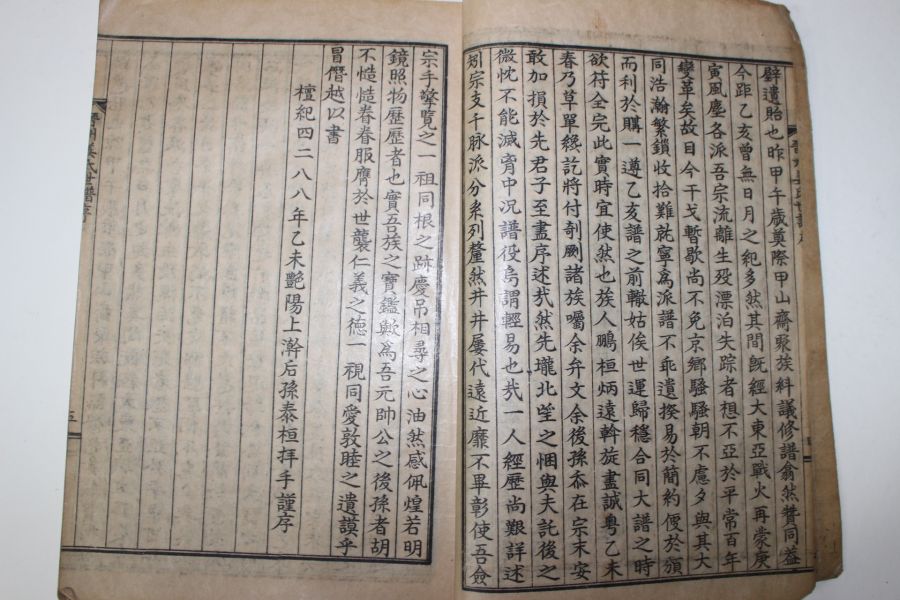 辟遺貽也昨甲午歲奠際甲山齋聚族料議修譜翕然贊同益
今距乙亥曾無日月之紀多然其間旣經大東亞戰火再蒙庚
寅風塵各派吾宗流離生歿漂泊失踪者想不亞於平常百年
變革矣故目今干戈暫歇尚不免京鄉騷騷朝不慮夕與其大
同浩瀚繁鎖收拾難就寧爲派譜不乖遺揆易於簡約便於頒
而利於購一遵乙亥譜之前轍姑俟世運歸穩合同大譜之時
欲符全完此實時宜使然也族人鵬桓炳遠斡旋盡誠粤乙未
春乃草單纔訖將付剞劂諸族囑余弁文余後孫忝在宗末安
敢加損於先君子至盡序述㢤然先壠北垈之悃與夫託後之
微忱不能滅胷中況譜役烏謂輕易也㢤一人經歷尚艱詳述
矧宗支千脉派分系列釐然井井屢代遠近靡不畢彰使吾僉
宗手擎覽之一祖同根之跡慶吊相尋之心油然感佩煌若明
鏡照物歷歷者也實吾族之寶鑑歟爲吾元帥公之後孫者胡
不慥慥眷眷服膺於世襲仁義之德一視同愛敦睦之遺謨乎
冒僭越以書
檀紀四二八八年乙未艷陽上澣后孫泰桓拜手謹序
氏世譜序
五